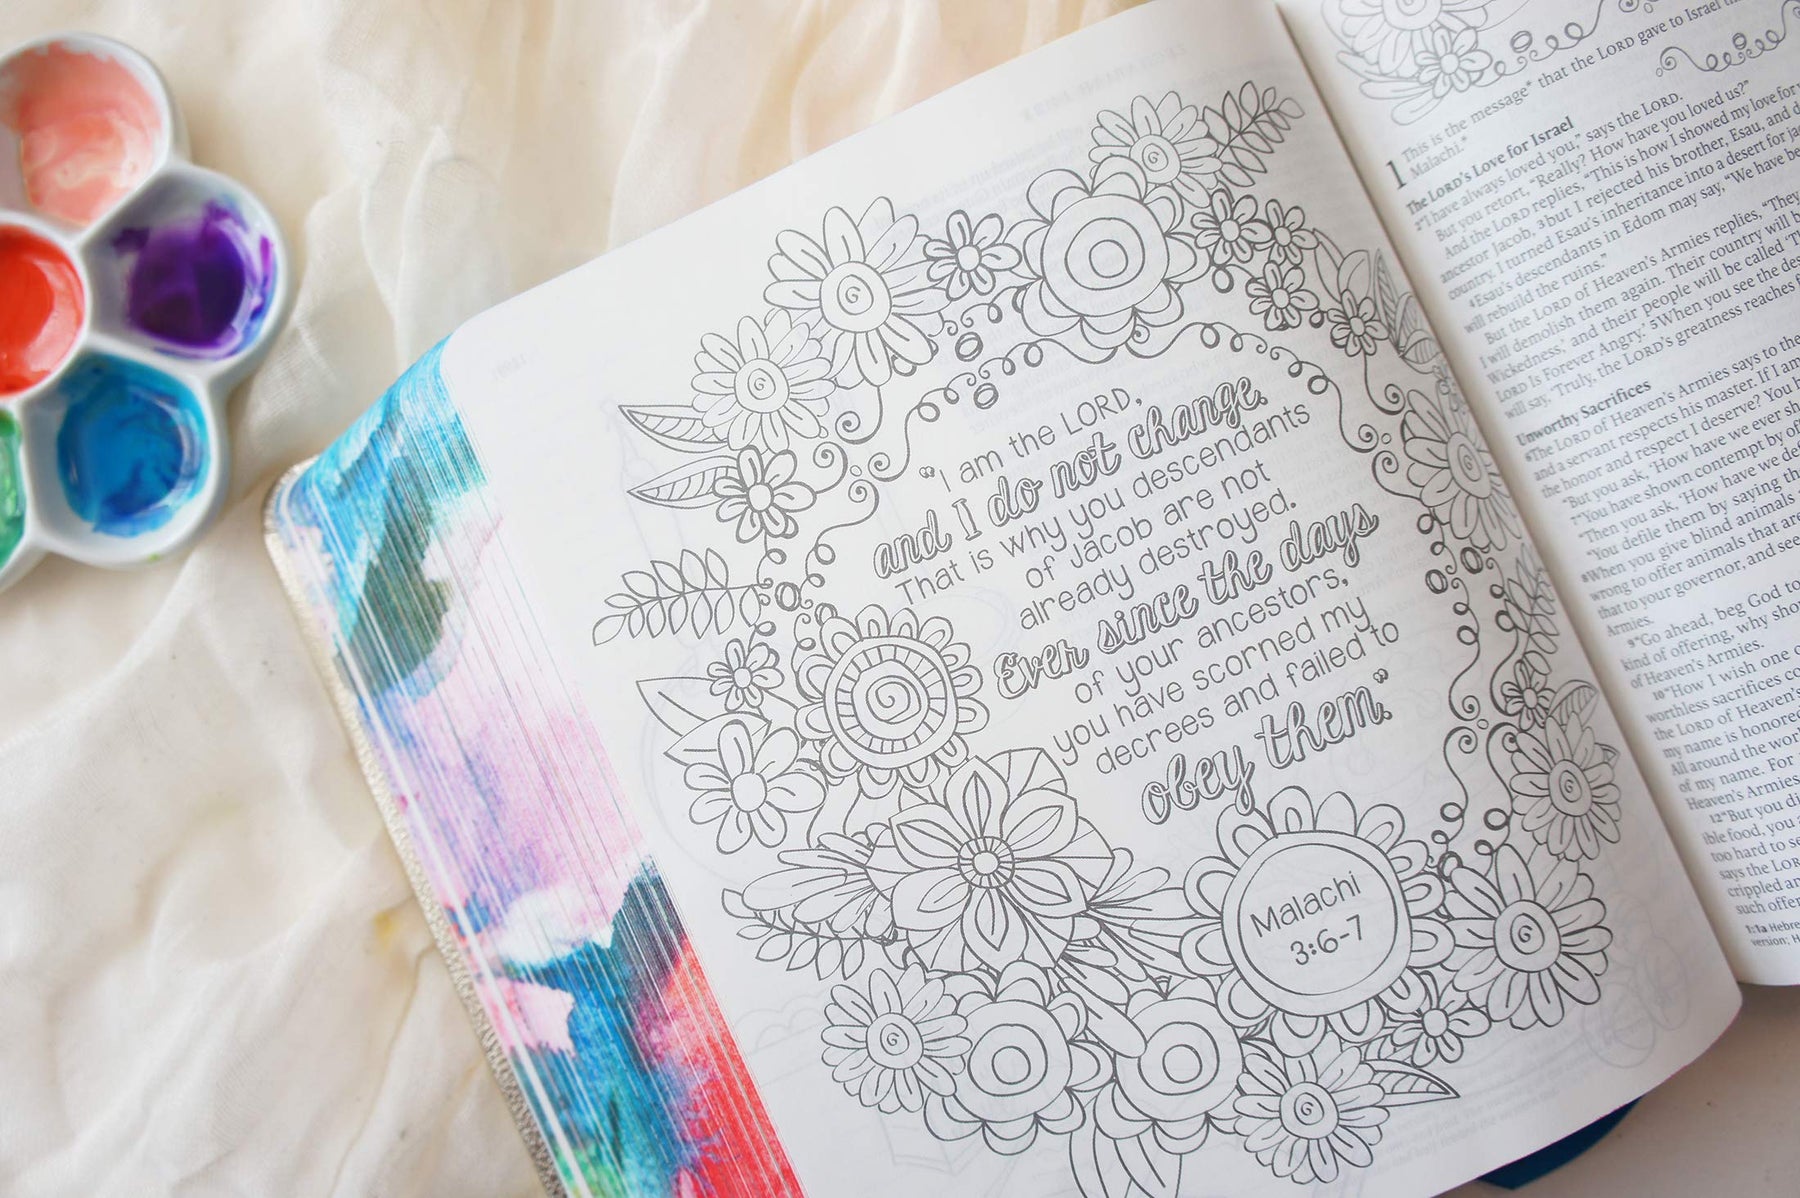 "I am the LORD,
and I do not change.
That is why you descendants
of Jacob are not
already destroyed.
Ever since the days
of your ancestors,
you have scorned my
decrees and failed to
obey them."
Malachi
3:6-7
1 This is the message* that the LORD gave to Israel
Malachi.*
The LORD's Love for Israel
2"I have always loved you," says the LORD.
But you retort, "Really? How have you loved us?"
And the LORD replies, "This is how I showed my love for
ancestor Jacob, 3but I rejected his brother, Esau, and
country. I turned Esau's inheritance into a desert for
4Esau's descendants in Edom may say, "We have
will rebuild the ruins."
But the LORD of Heaven's Armies replies, "They
I will demolish them again. Their country will
Wickedness,' and their people will be called 'The
LORD Is Forever Angry.' 5When you see the
will say, 'Truly, the LORD's greatness reaches
Unworthy Sacrifices
6The LORD of Heaven's Armies says to the
and a servant respects his master. If I am
the honor and respect I deserve? You
"But you ask, 'How have we ever
7"You have shown contempt by
"Then you ask, 'How have we
"You defile them by saying the
8When you give blind animals
wrong to offer animals that are
that to your governor, and see
Armies.
9"Go ahead, beg God to
kind of offering, why
of Heaven's Armies.
10"How I wish one
worthless sacrifices
the LORD of Heaven's
my name is honored
All around the
of my name. For
Heaven's Armies
12"But you
ible food, you
too hard to
says the LORD
crippled
such
1:1a Hebrew
version;